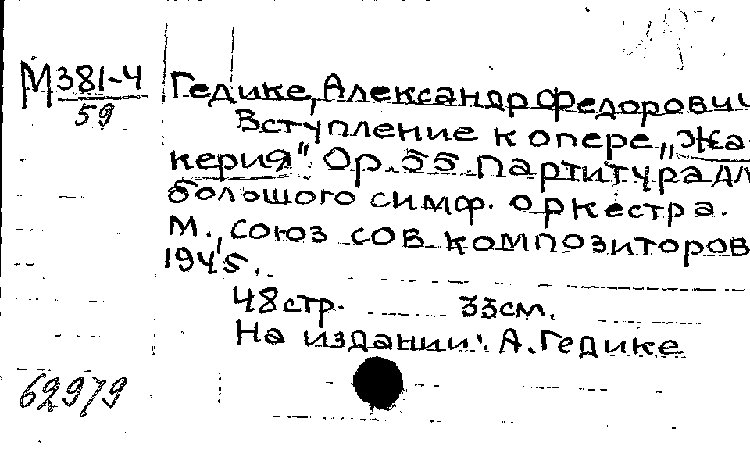 М 381-4
59
Гедике, Александр Федорович
Вступление к опере „Жа-
керия". Op. 55 Партитура для
большого симф. оркестра.
М., Союз сов. композиторов
1945.
48 стр. 33 см.
На издании: А. Гедике
62979